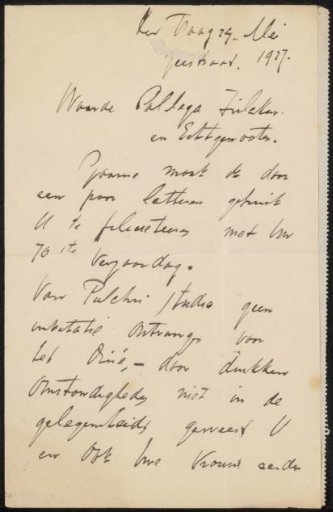 Den Haag 29 Mei
1927.
Waarde Collega Zilcken
en Echtgenoote.
Gaarne maak ik door
een paar letteren gebruik
U te feliciteeren met Uw
70ste Verjaardag.
Van Pulchri Studio geen
invitatie ontvangen voor
het Diné, — door drukken
Omstandigheden niet in de
gelegenheid geweest U
en Ook Uwe Vrouw eerder